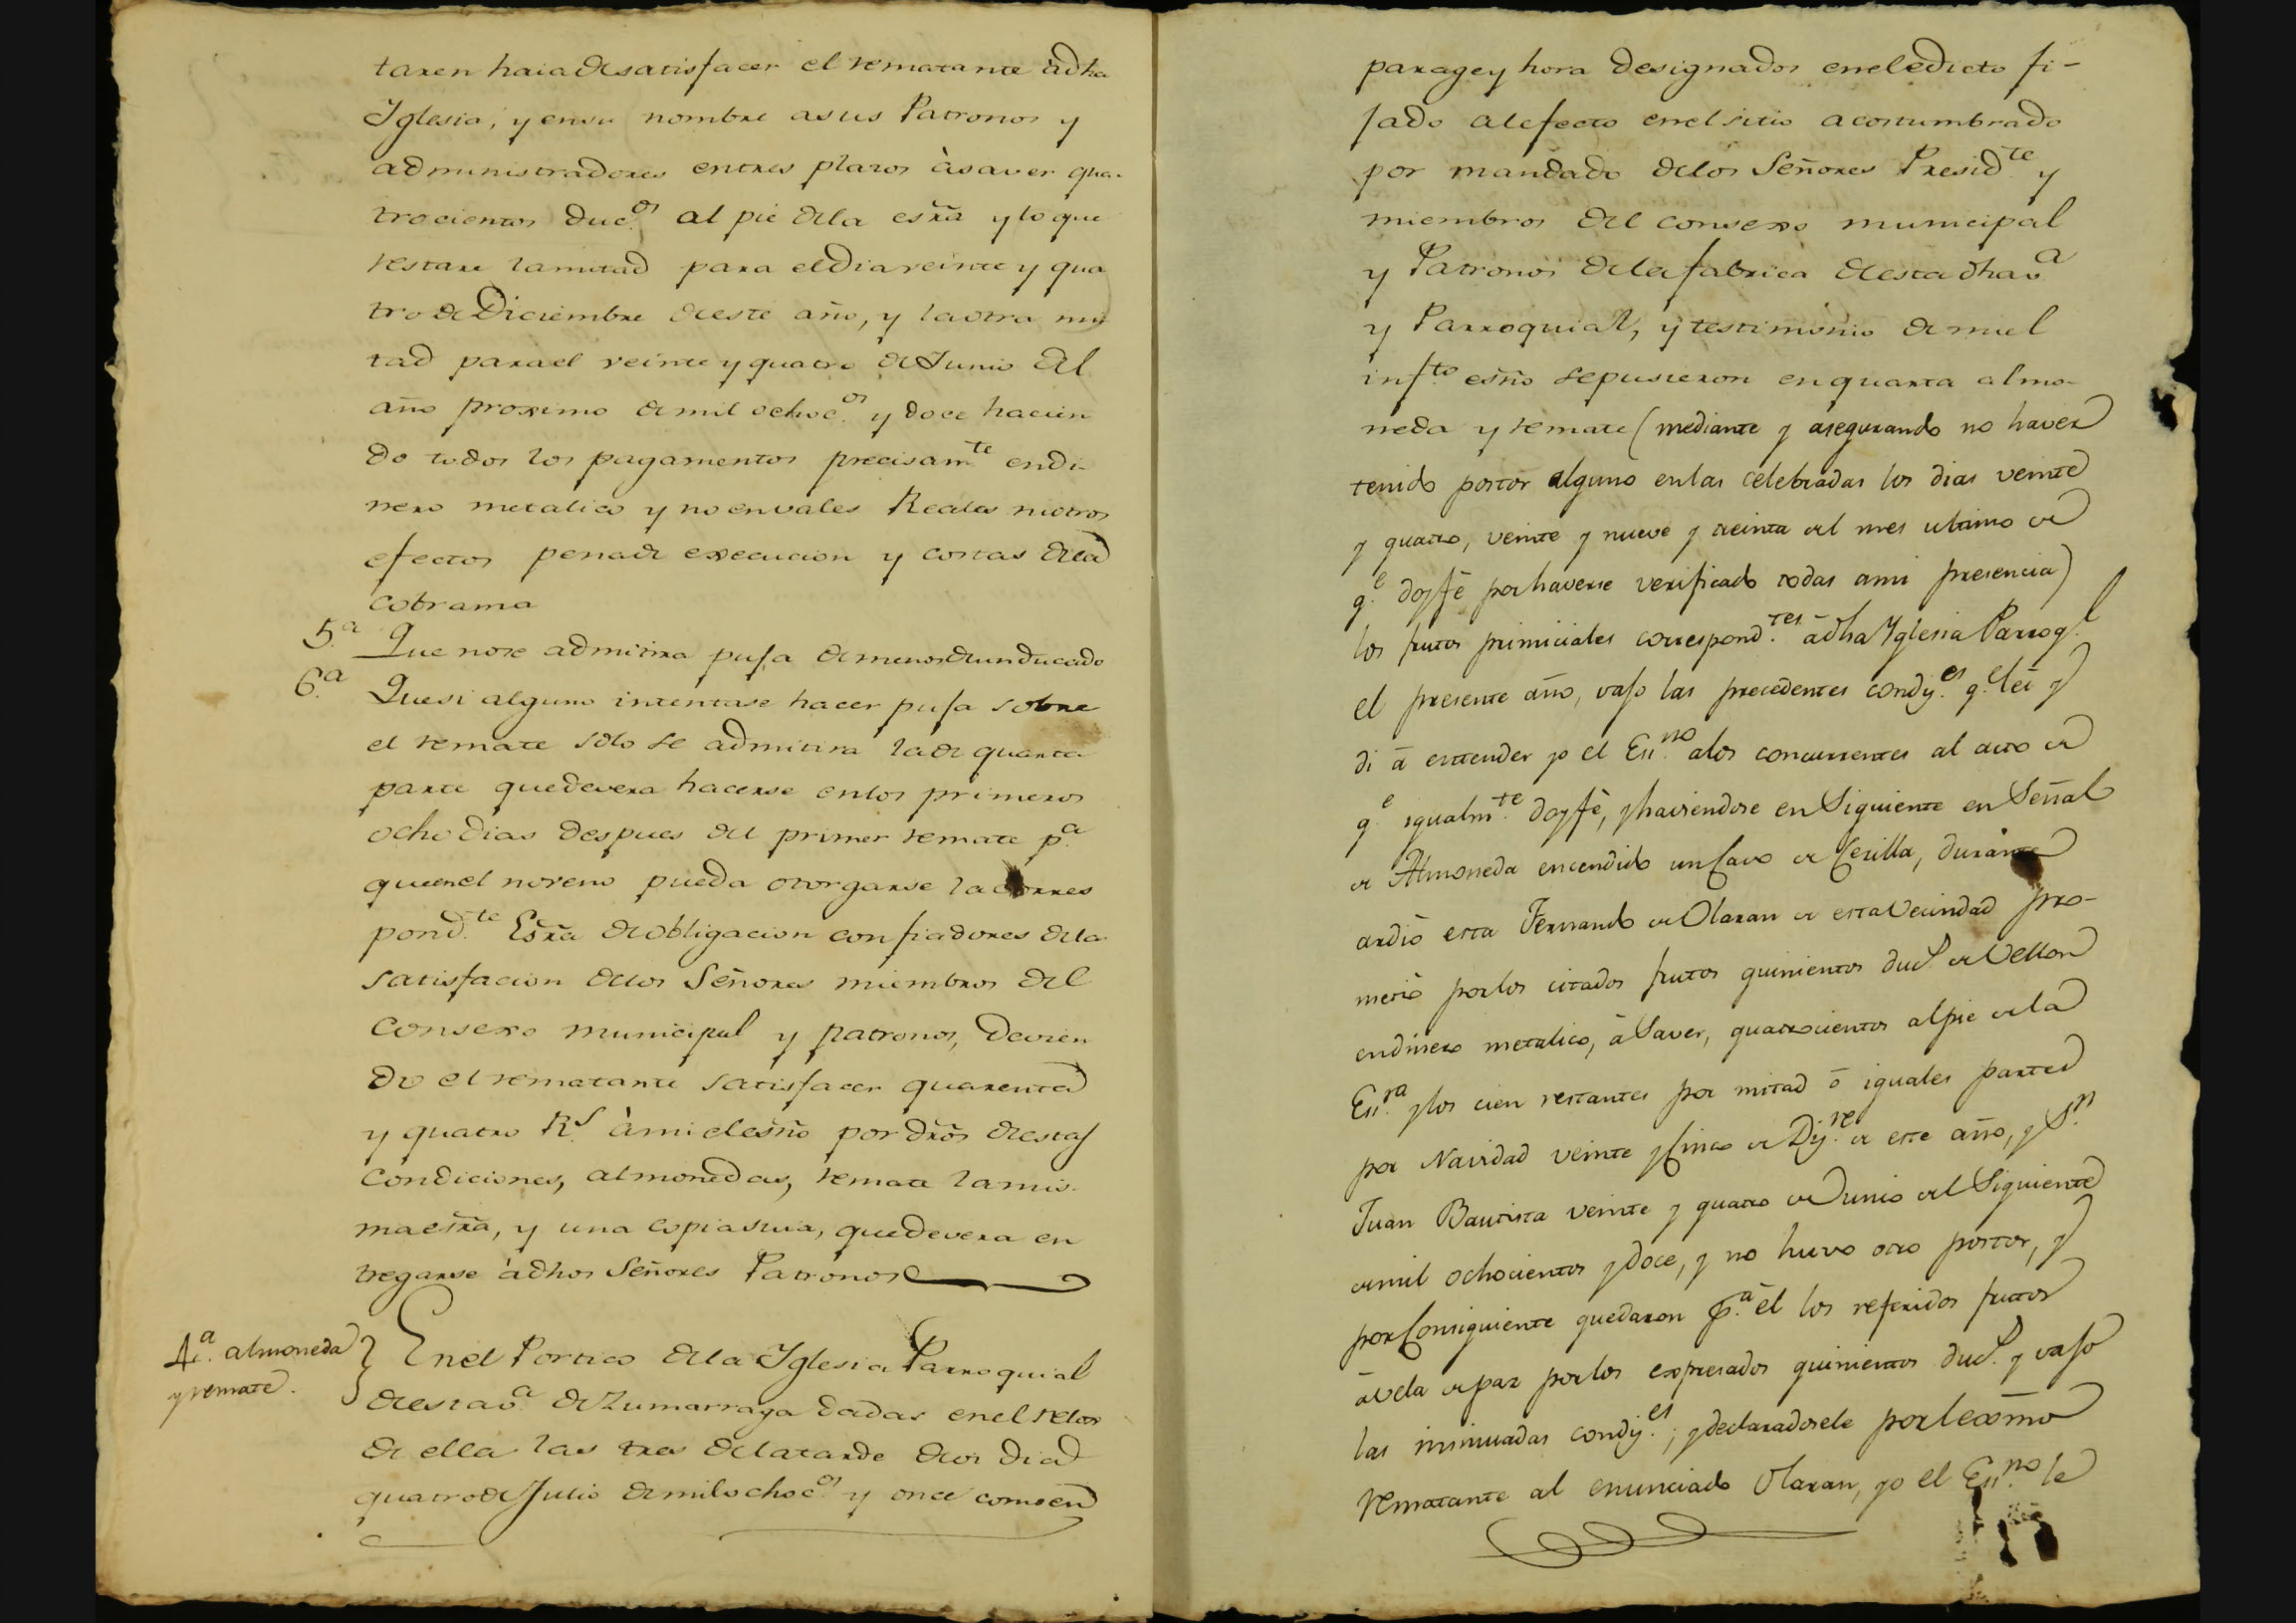 taren haia de satisfacer el rematante à dha
Yglesia, y en su nombre a sus Patronos y
administradores en tres plazos à saver qua-
trocientos duc.os al pie de la esrã y lo que
restare la mitad para el dia veinte y qua
tro de Diciembre de este año, y la otra mi
tad para el veinte y quatro de Junio del
año proximo de mil ochoc.os y doce hacien
do todos los pagamentos precisam.te en di-
nero metalico y no en vales Reales ni otros
efectos pena de execucion y costas de la
cobranza
5.a Que no se admitira puja de menos de un ducado
6.a Que si alguno intentase hacer puja sobre
el remate solo se admitira la de quarta
parte que devera hacerse en los primeros
ocho dias despues del primer remate p.a
que en el noveno pueda otorgarse la corres
pond.te Esrã de obligacion con fiadores de la
satisfacion de los Señores miembros del
consexo municipal y patronos, devien
do el rematante satisfacer quarenta
y quatro R.s à mi el esño por drõs de estas
condiciones, almonedas, remate la mis-
ma esrã, y una copia suia, que devera en
tregarse à dhos Señores Patronos
4.a almoneda
y remate.
En el Portico de la Yglesia Parroquial
de esta v.a de Zumarraga dadas en el relox
de ella las tres de la tarde de oi dia
quatro de Julio de mil ochoc.os y once como en
parage y hora designados en el edicto fi-
jado al efecto en el sitio acostumbrado
por mandado de los Señores Presid.te y
miembros del consexo municipal
y Patronos de la fabrica de esta dha v.a
y Parroquial, y testimonio de mi el
inf.to esño se pusieron en quarta almo-
neda y remate (mediante y asegurando no haver
tenido postor alguno en las celebradas los dias veinte
y quatro, veinte y nueve y treinta del mes ultimo de
q.e doy fè por haverse verificado todas a mi presencia)
los frutos primiciales correspond.tes à dha Yglesia Parroq.l
el presente año, vajo las precedentes condiz.es q.e lei y
di à entender yo el Ess.no a los concurrentes al acto de
q.e igualm.te doy fè, y haviendose en Siguiente en Señal
de Almoneda encendido un Cavo de Cerilla, durante
ardiò esta Fernando de Olaran de esta Vecindad pro-
metiò por los citados frutos quinientos duc.s de Vellon
en dinero metalico, à Saver, quatrocientos al pie de la
Ess.ra y los cien restantes por mitad ò iguales partes
por Navidad veinte y Cinco de Diz.re de este año, y S.n
Juan Bautista veinte y quatro de Junio del Siguiente
de mil ochocientos y doce, y no huvo otro postor, y
por Consiguiente quedaron p.a èl los referidos frutos
à vela de par por los expresados quinientos duc.s y vajo
las insinuadas condiz.es; y declaradosele por lexmo
Rematante al enunciado Olaran, yo el Ess.no le